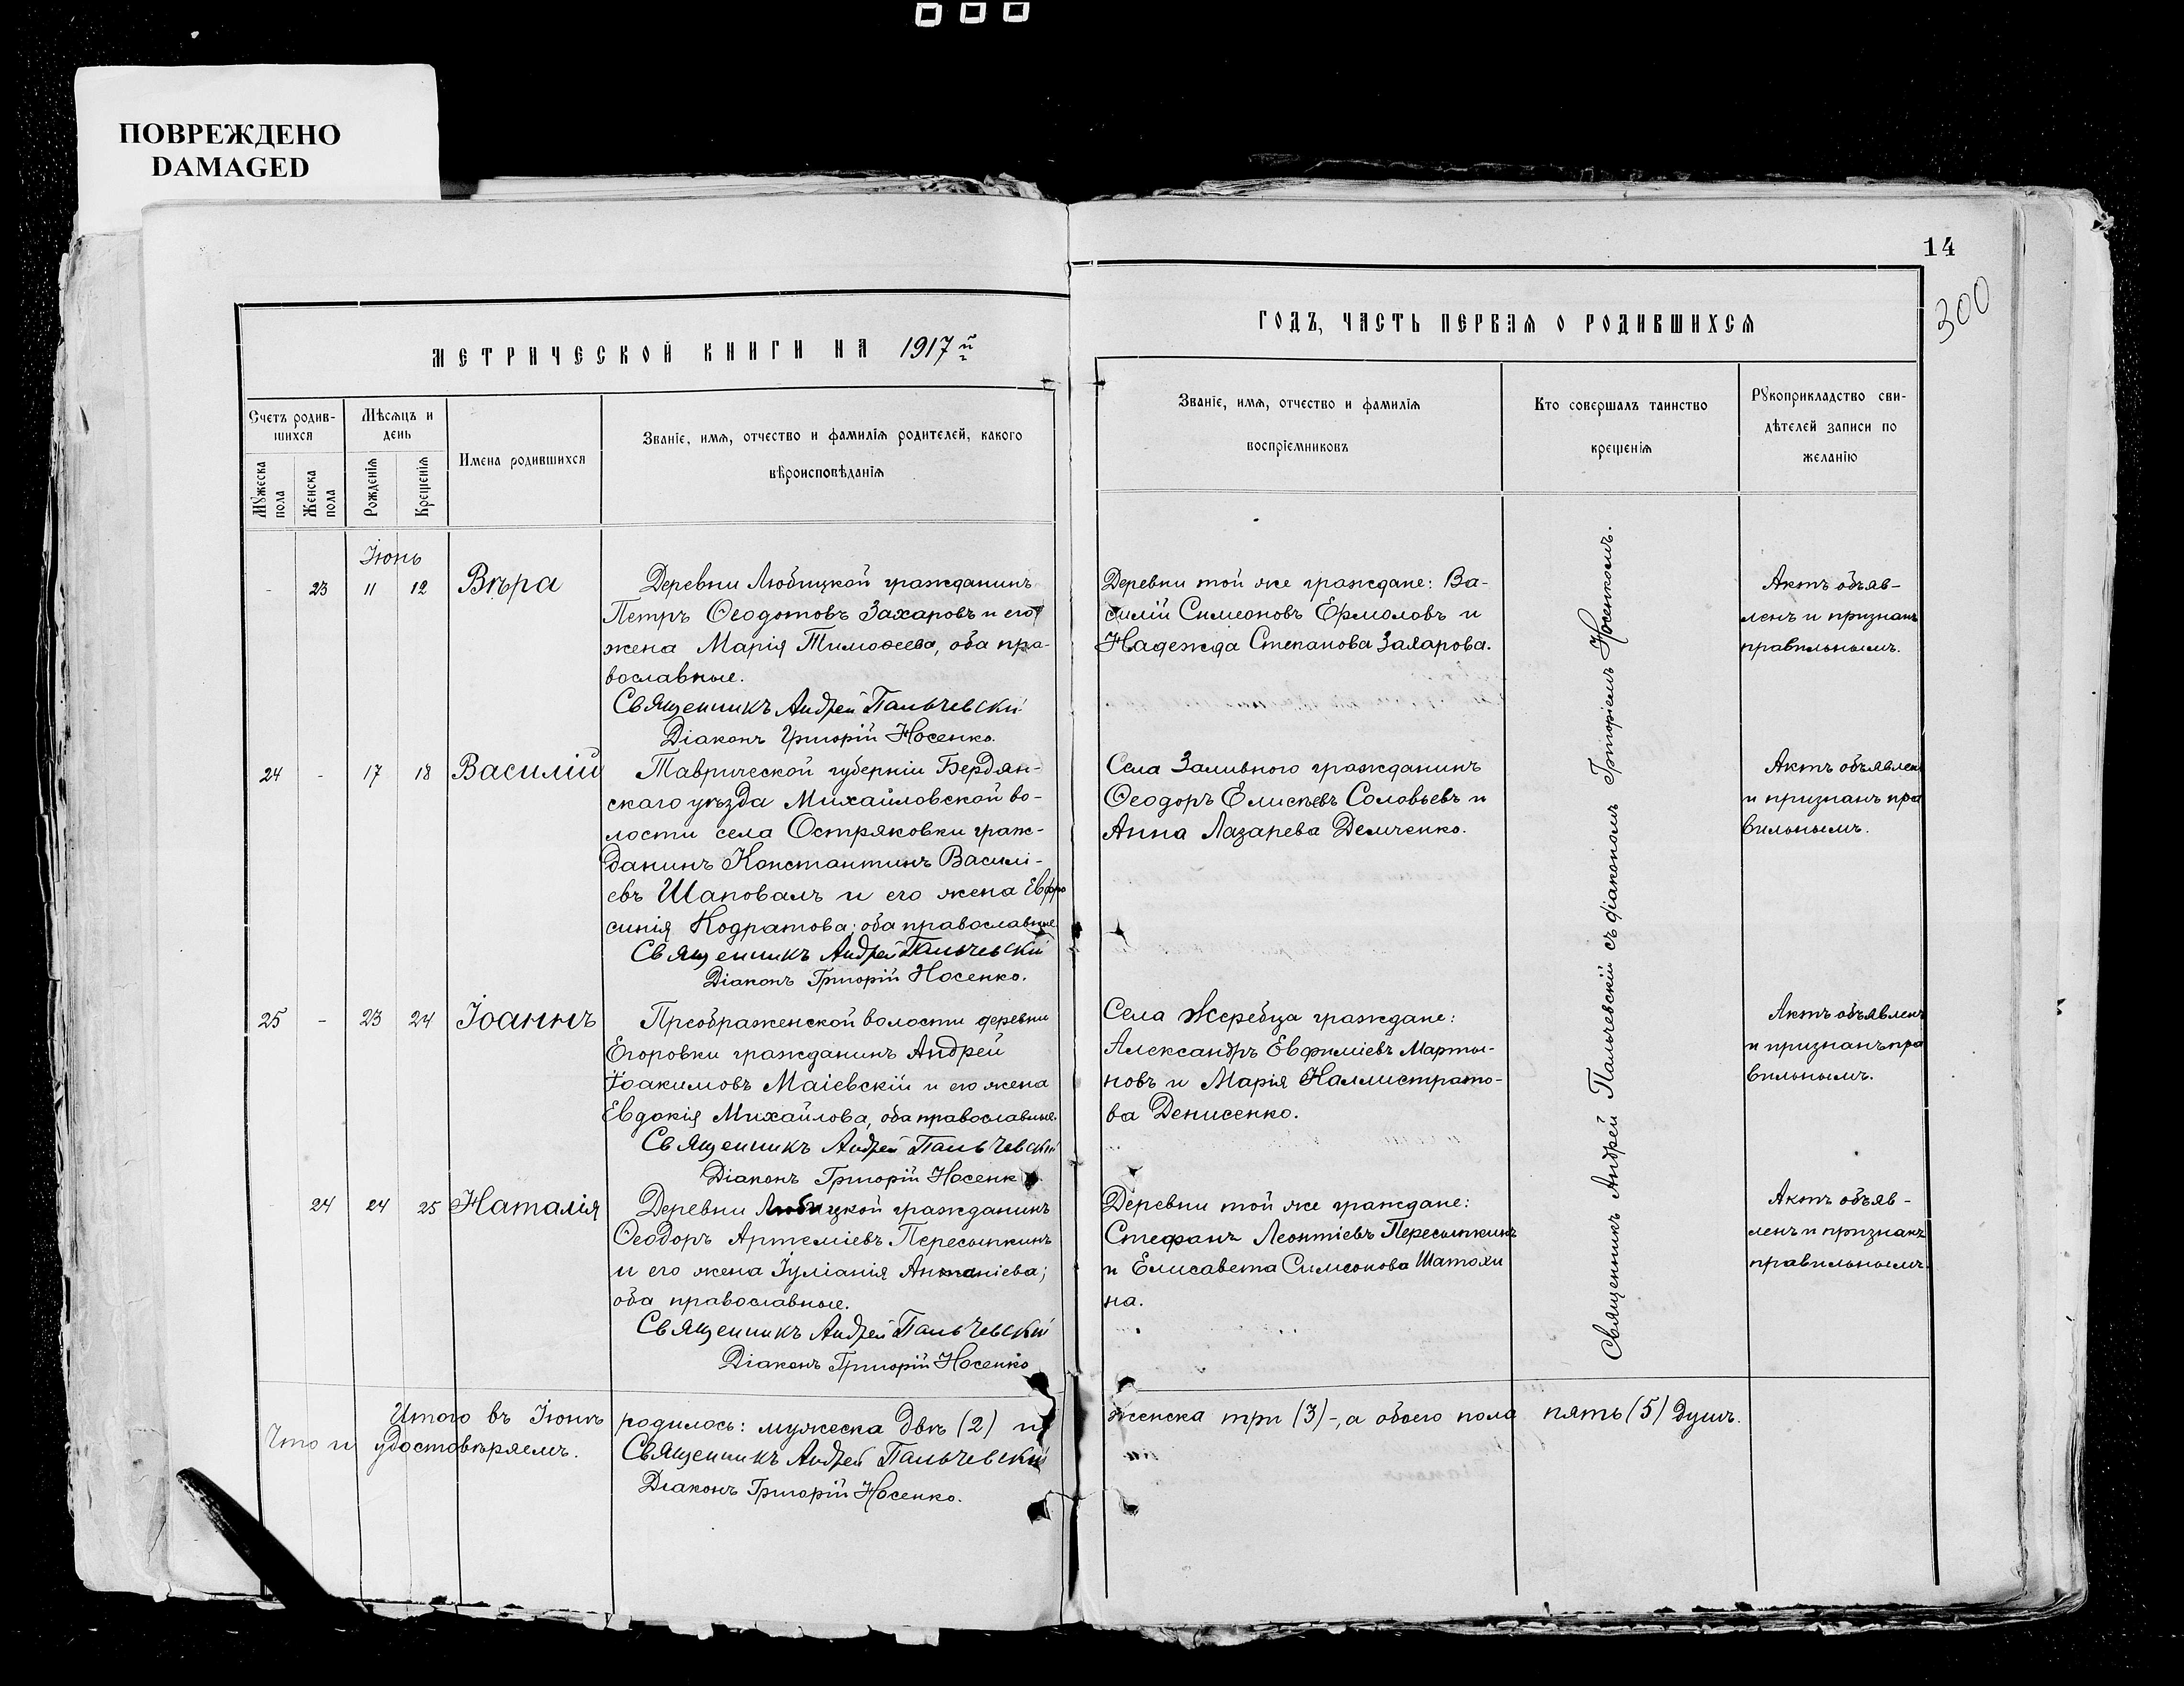 ПОВРЕЖДЕНО
DAMAGED
14
300
МЕТРИЧЕСКОЙ КНИГИ НА 1917й
ГОДЪ, ЧАСТЬ ПЕРВАЯ О РОДИВШИХСЯ
Счетъ родив-
шихся
Мужеска
пола
Женска
пола
Мѣсяцъ и
день
Рожденія
Крещенія
Имена родившихся
Званіе, имя, отчество и фамилія родителей, какого
вѣроисповѣданія
Званіе, имя, отчество и фамилія
воспріемниковъ
Кто совершалъ таинство
крещенія
Рукоприкладство сви-
дѣтелей записи по
желанію
Іюнь
- 23 11 12 Вѣра
Деревни Любицкой гражданинъ
Петръ Ѳеодотовъ Захаровъ и его
жена Марія Тимоѳеева, оба пра-
вославные.
Священникъ Андрей Пальчевскій
Діаконъ Григорій Носенко.
Деревни той же граждане: Ва-
силій Симеоновъ Ермоловъ и
Надежда Степанова Захарова.
Актъ объяв-
ленъ и признанъ
правильнымъ.
24 - 17 18 Василій
Таврической губерніи Бердян-
скаго уѣзда Михайловской во-
лости села Остряковки граж-
данинъ Константинъ Василі-
евъ Шаповалъ и его жена Евфро
синія Кодратова; оба православные
Священникъ Андрей Пальчевскій
Діаконъ Григорій Носенко.
Села Заливного гражданинъ
Ѳеодоръ Елисѣевъ Соловьевъ и
Анна Лазарева Демченко.
Актъ объявленъ
и признанъ пра
вильнымъ.
25 - 23 24 Іоаннъ
Преображенской волости деревни
Егоровки гражданинъ Андрей
Іоакимовъ Маіевскій и его жена
Евдокія Михайлова, оба православные.
Священникъ Андрей Пальчевскій
Діаконъ Григорій Носенк
Села Жеребца граждане:
Александръ Евфиміевъ Марты-
новъ и Марія Каллистрато-
ва Денисенко.
Актъ объявленъ
и признанъ пра
вильнымъ.
- 24 24 25 Наталія
Деревни Любицкой гражданинъ
Ѳеодоръ Артеміевъ Пересыпкинъ
и его жена Іуліанія Антоніева;
оба православные.
Священникъ Андрей Пальчевскій
Діаконъ Григорій Носенко
Деревни той же граждане:
Стефанъ Леонтіевъ Пересыпкинъ
и Елисавета Симеонова Шатохи
на.
Актъ объяв-
ленъ и признанъ
правильнымъ
Священникъ Андрей Пальчевскій съ діакономъ Григоріемъ Носенкомъ.
Итого въ Іюнѣ родилось: мужеска двѣ (2) и женска три (3)-, а обоего пола пять (5) душъ.
Что и удостовѣряемъ. Священникъ Андрей Пальчевскій
Діаконъ Григорій Носенко.